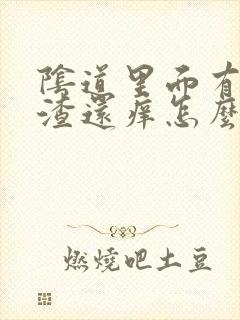 陰道里面有
渣還痒怎麽
燃燒吧土豆